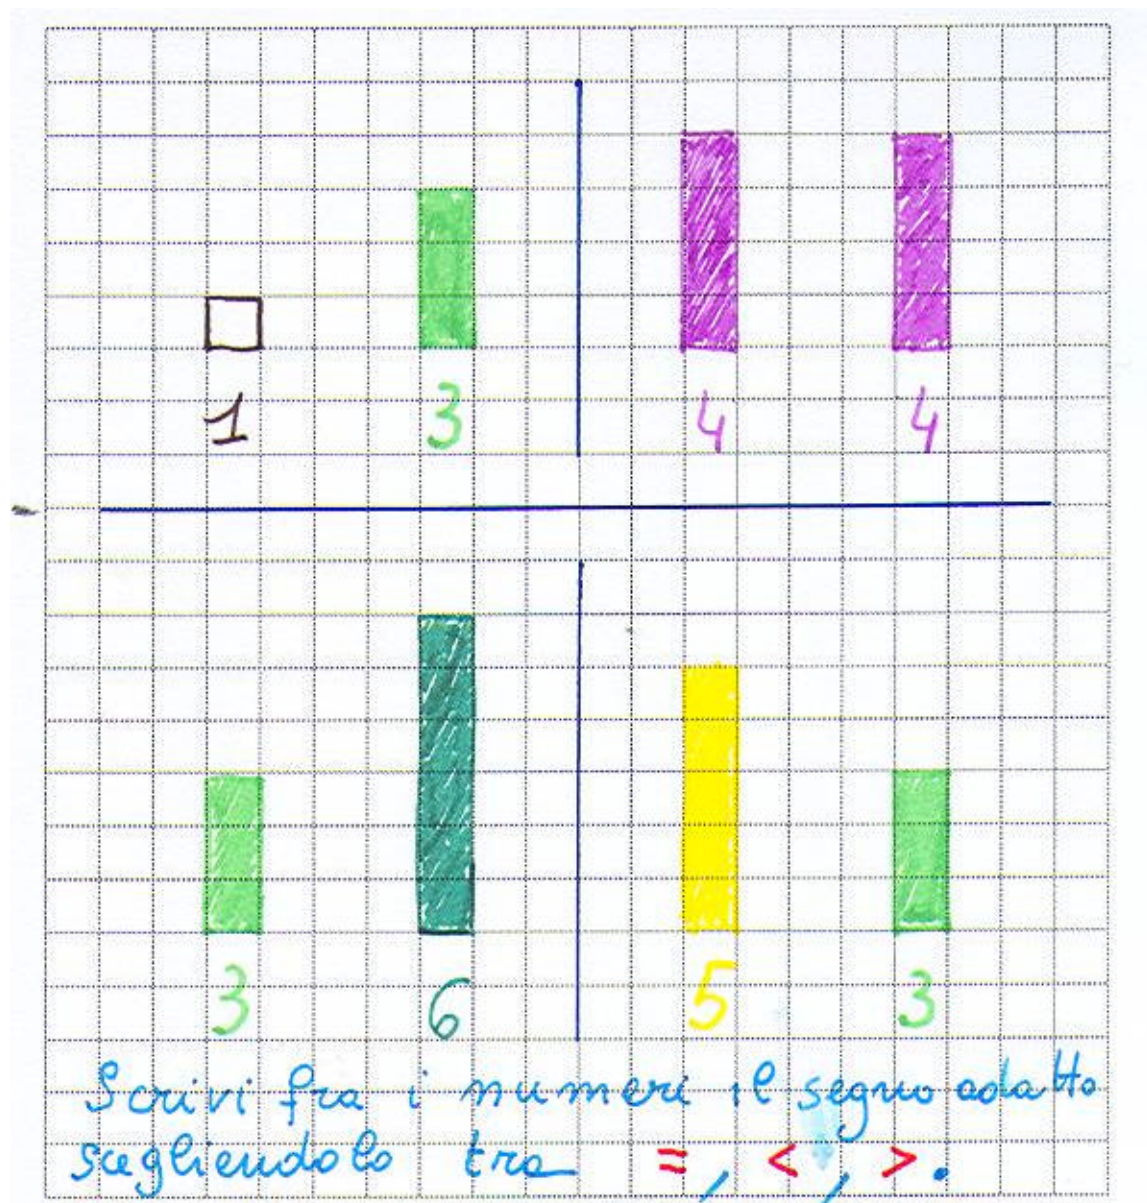 1 3 4 4
3 6 5 3
Scrivi fra i numeri il segno adatto
scegliendolo tra =, <, >.